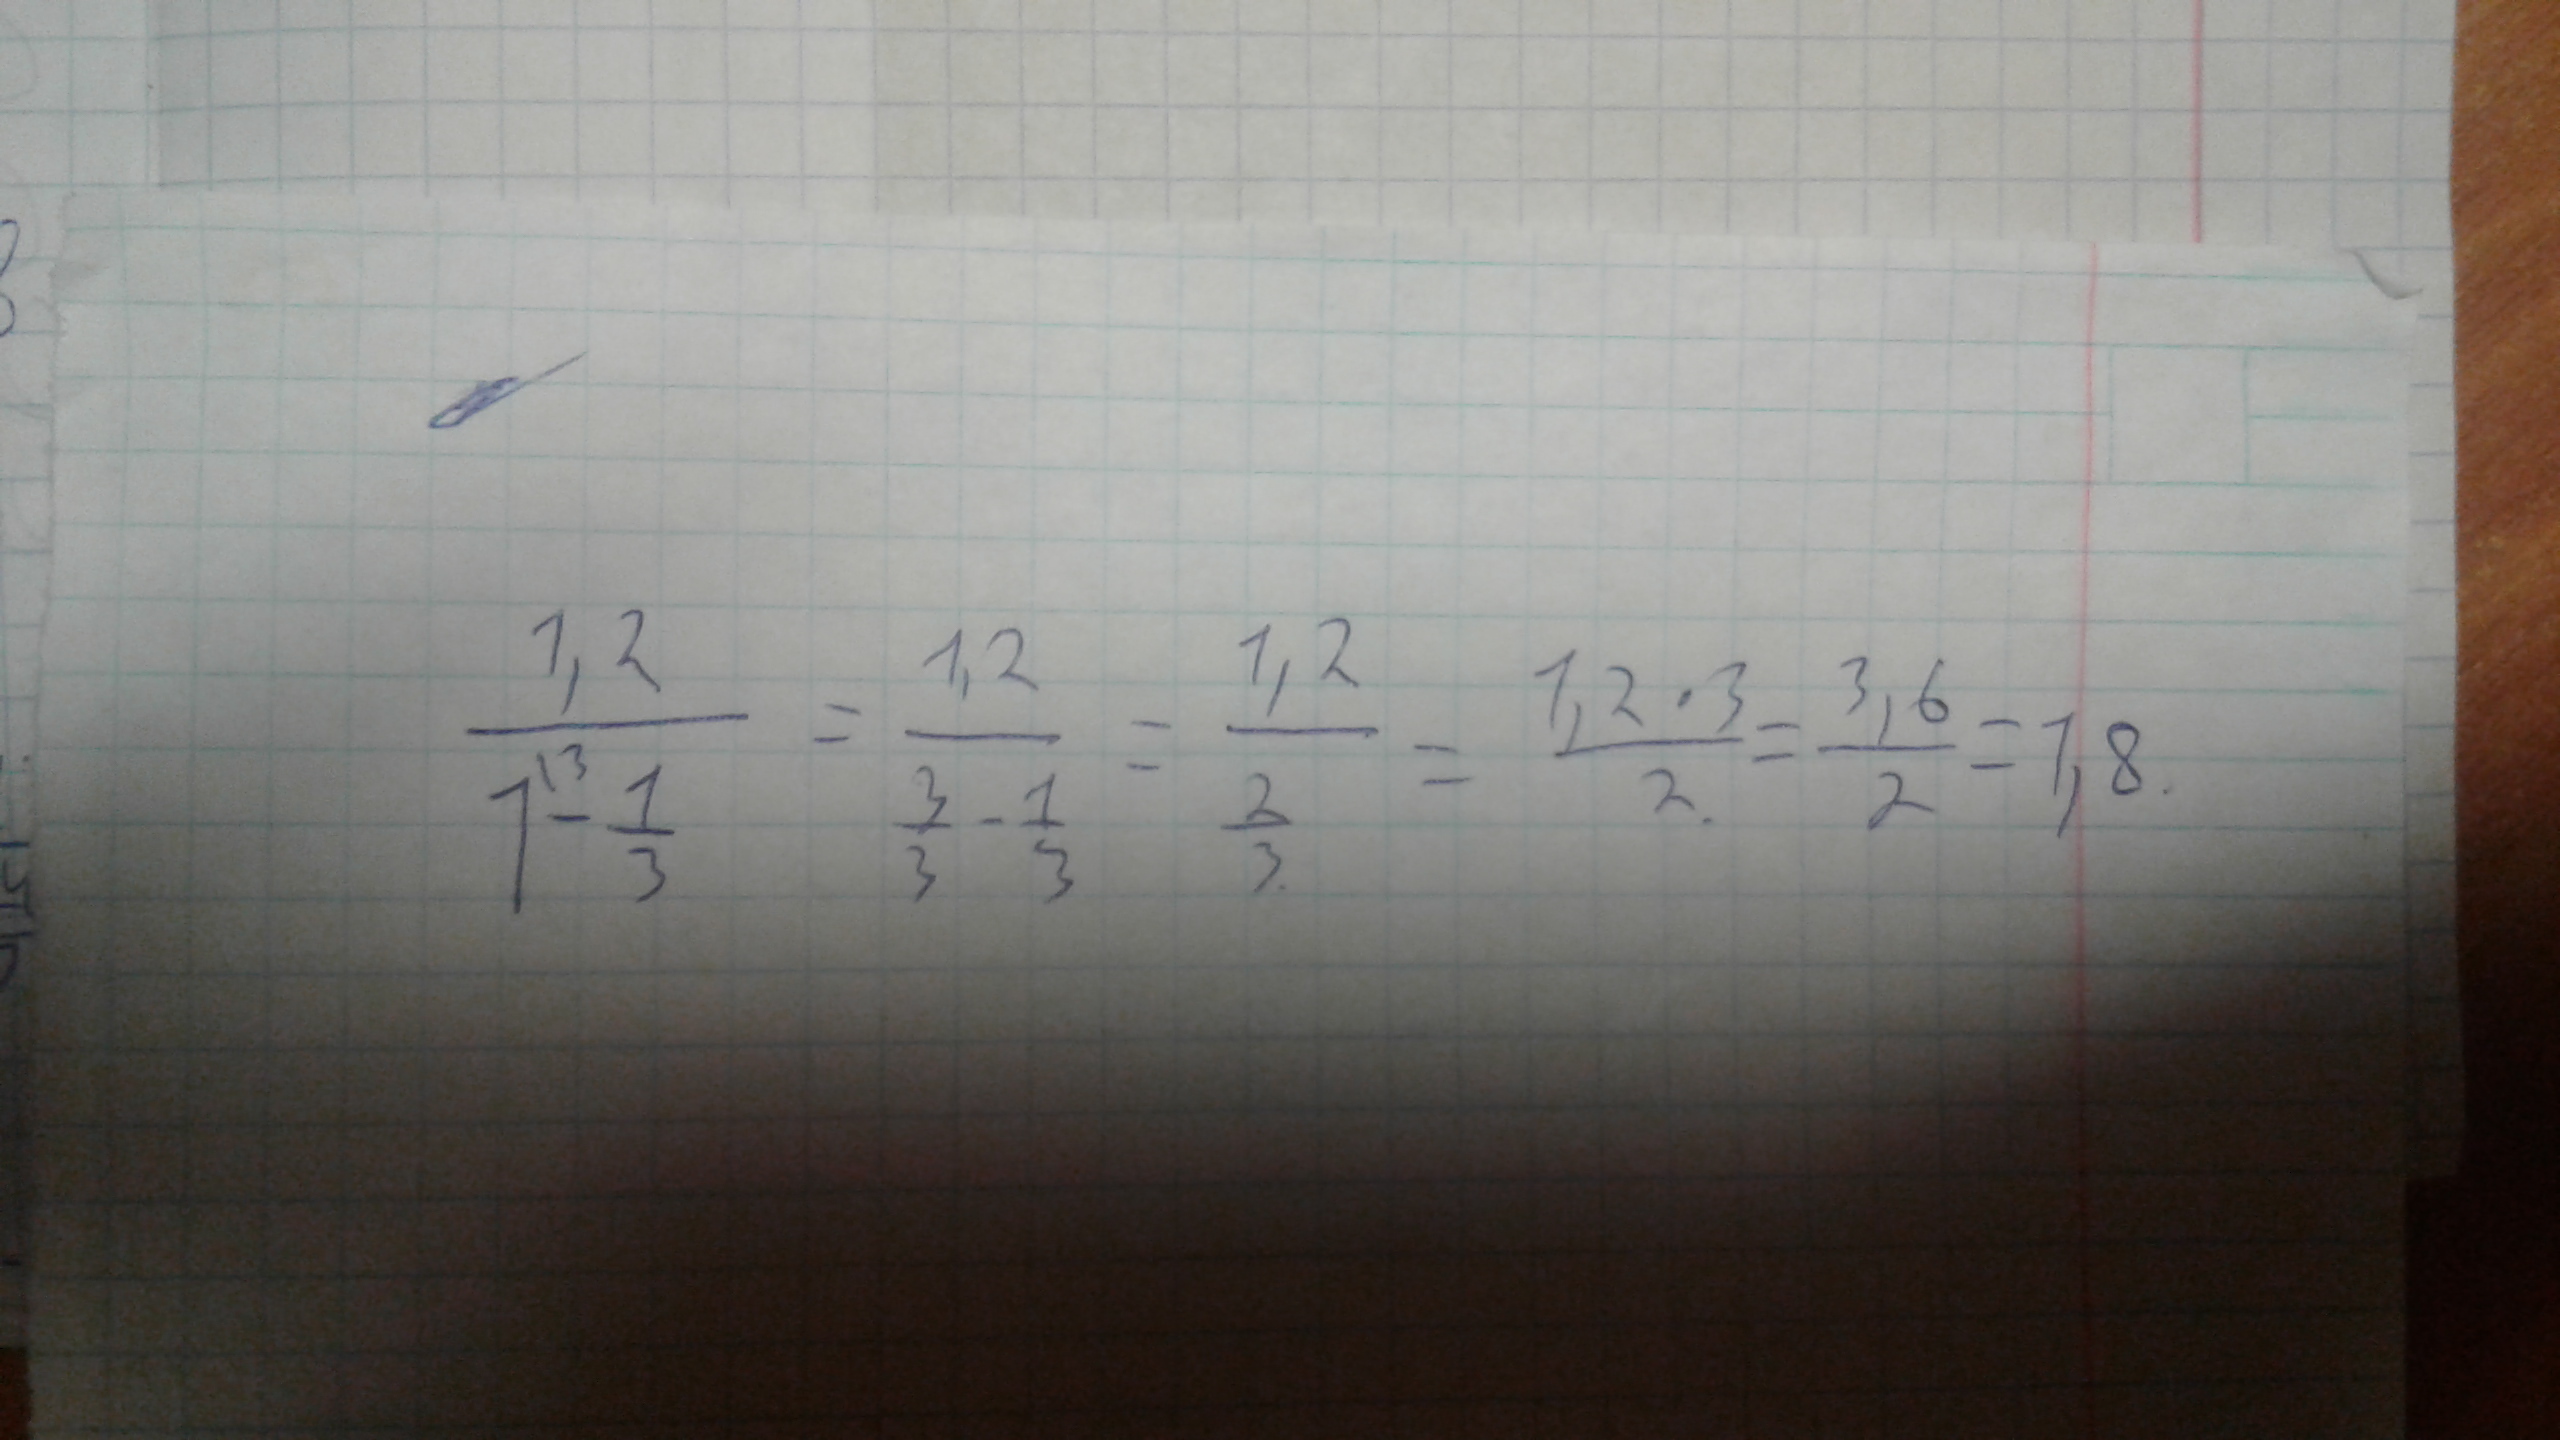 1,2 / (1^{\3} - 1/3) = 1,2 / (3/3 - 1/3) = 1,2 / (2/3) = 1,2 · 3 / 2 = 3,6 / 2 = 1,8.